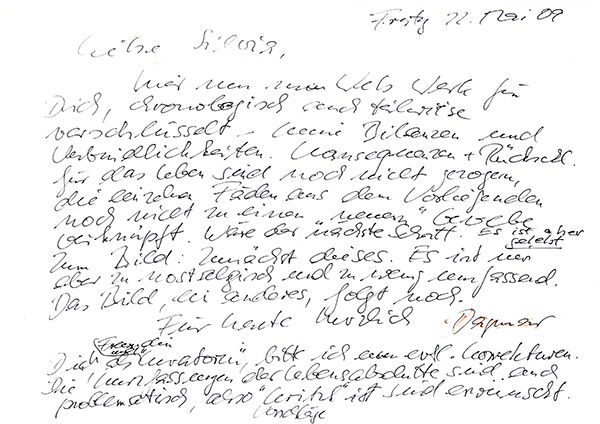 Freitg 22. Mai 09
Liebe Silvia,
hier nun mein Web Werk für
Dich, chronologisch und teilweise
verschlüsselt - meine Bilanzen und
Verbindlichkeiten. Konsequenzen + Rückschl.
für das Leben sind noch nicht gezogen,
die einzelnen Fäden aus dem Vorliegenden
noch nicht zu einem "neuen" Gewebe
verknüpft. Wäre der nächste Schritt. Es ist aber
gelebt
Zum Bild: zunächst dieses. Es ist mir
aber zu nostalgisch und zu wenig umfassend.
Das Bild, ein anderes, folgt noch.
Für heute herzlich Dagmar
Freundin
und
Dich als "Kuratorin", bitt ich um evtl. Korrekturen.
Die Kurzfassungen der Lebensabschnitte sind auch
problematisch, also "Kritik" ist sind erwünscht.
Vorschläge